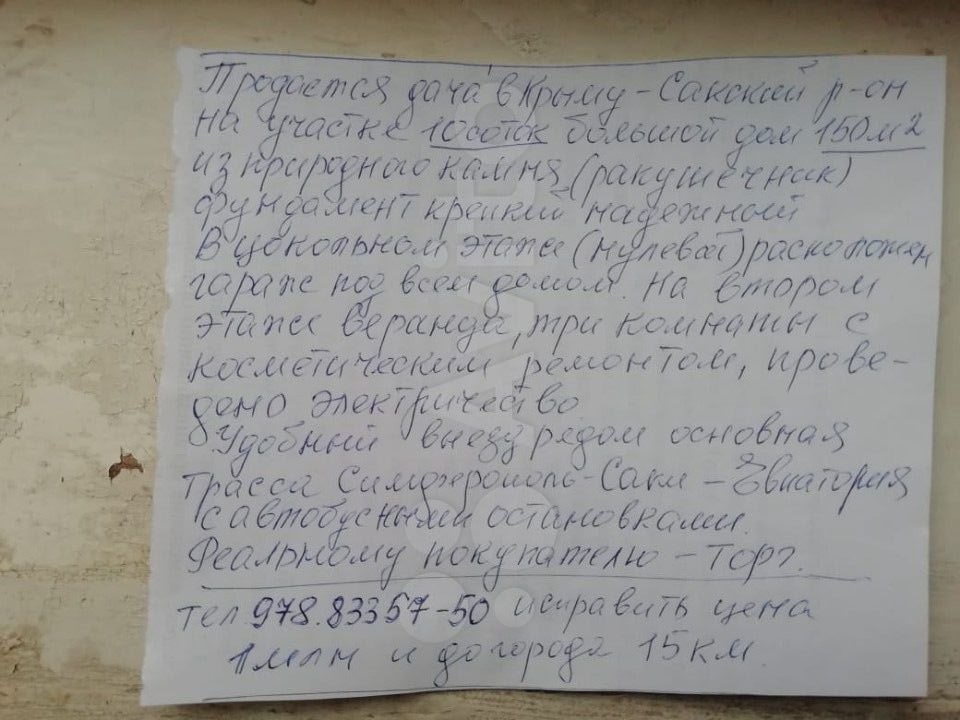 Продается дача в Крыму - Сакский р-он
на участке 10 соток большой дом 150м2
из природного камня (ракушечник)
фундамент крепкий надежный
В цокольном этаже (нулевой) расположен
гараж под всем домом. На втором
этаже веранда, три комнаты с
косметическим ремонтом, прове-
дено электричество.
Удобный выезд рядом основная
трасса Симферополь-Саки - Евпатория
с автобусными остановками.
Реальному покупателю - торг.
тел 978.83357-50 исправить цена
1 млн и до города 15 км
Avito